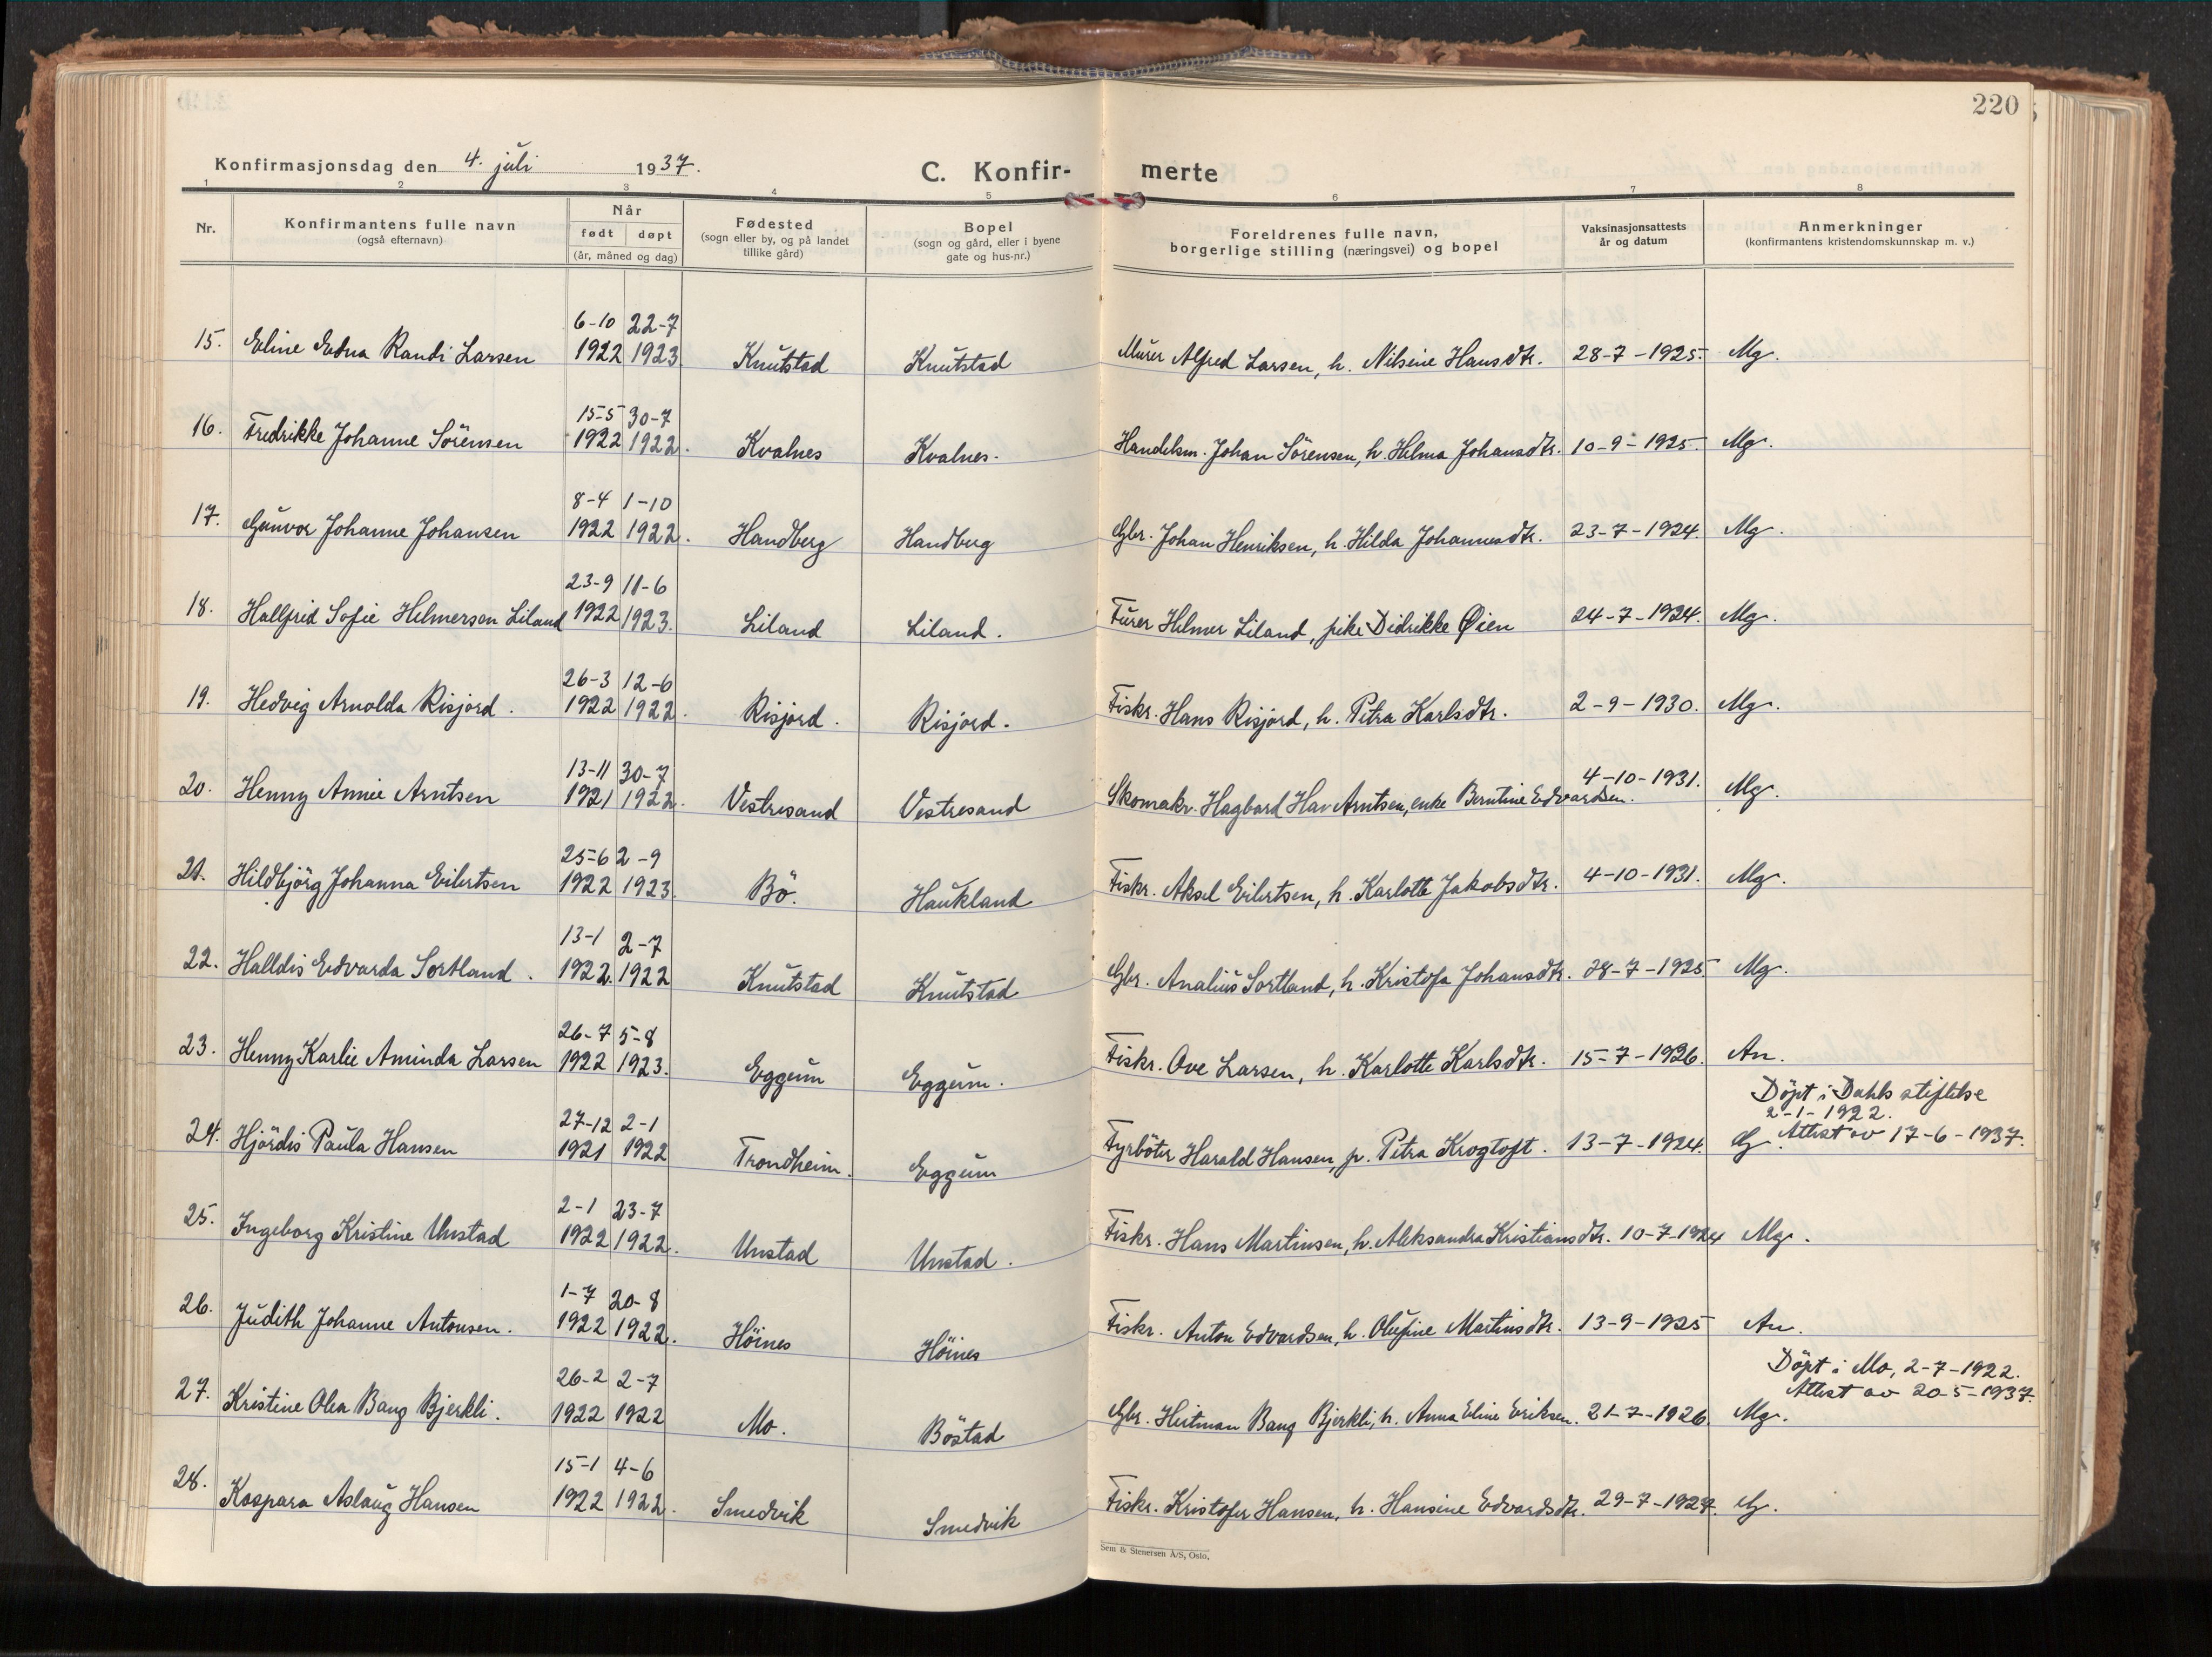 220
Konfirmasjonsdag den 4. juli 1937.
C. Konfir- merte
1 2 3 4 5 6 7 8
Nr.
Konfirmantens fulle navn
(også efternavn)
Når
født døpt
(år, måned og dag)
Fødested
(sogn eller by, og på landet
tillike gård)
Bopel
(sogn og gård, eller i byene
gate og hus-nr.)
Foreldrenes fulle navn,
borgerlige stilling (næringsvei) og bopel
Vaksinasjonsattests
år og datum
Anmerkninger
(konfirmantens kristendomskunnskap m. v.)
6-10 22-7
15. Eline Edna Randi Larsen 1922 1923. Knutstad Knutstad Murer Alfred Larsen, h. Nilsine Hansdtr. 28-7-1925. Mg.
15-5 30-7
16. Fredrikke Johanne Sörensen 1922 1922. Kvalnes Kvalnes. Handelsm. Johan Sörensen, h. Helma Johansdtr. 10-9-1925. Mg.
8-4 1-10
17. Gunvor Johanne Johansen 1922 1922. Handberg Handberg Gbr. Johan Henriksen, h. Hilda Johannesdtr. 23-7-1924. Mg.
23-9 11-6
18. Hallfrid Sofie Helmersen Liland 1922 1923. Liland Liland. Furer Helmer Liland, pike Didrikke Øien 24-7-1924. Mg.
26-3 12-6
19. Hedvig Arnolda Risjord. 1922 1922. Risjord. Risjord. Fiskr. Hans Risjord, h. Petra Karlsdtr. 2-9-1930. Mg.
13-11 30-7
20. Henny Annie Arntsen 1921 1922. Vestresand Vestresand Skomakr. Hagbard Hav Arntsen, enke Berntine Edvardsen. 4-10-1931. Mg.
25-6 2-9
21. Hildbjörg Johanna Eilertsen 1922 1923. Bö. Haukland Fiskr. Aksel Eilertsen, h. Karlotte Jakobsdtr. 4-10-1931. Mg.
13-1 2-7
22. Halldis Edvarda Sortland. 1922. 1922 Knutstad Knutstad Gbr. Analius Sortland, h. Kristofa Johansdtr. 28-7-1925 Mg.
26-7 5-8
23. Henny Karlie Aminda Larsen 1922 1923. Eggum Eggum. Fiskr. Ove Larsen, h. Karlotte Karlsdtr. 15-7-1926. An.
Döpt i Dahls stiftelse
2-1-1922.
27-12 2-1
24. Hjördis Paula Hansen 1921 1922 Trondheim. Eggum Fyrböter Harald Hansen, p. Petra Krogtoft. 13-7-1924. G. Attest av 17-6-1937.
2-1 23-7
25. Ingeborg Kristine Unstad 1922 1922. Unstad Unstad. Fiskr. Hans Martinsen, h. Aleksandra Kristiansdtr. 10-7-1924 Mg.
1-7 20-8
26. Judith Johanne Antonsen. 1922 1922. Höines Höines Fiskr. Anton Edvardsen, h. Olufine Martinsdtr. 13-9-1925 An.
Döpt i Mo, 2-7-1922.
Attest av 20-5-1937.
26-2 2-7
27. Kristine Olea Bang Bjerkli. 1922 1922 Mo. Böstad Gbr. Heitman Bang Bjerkli, h. Anna Eline Eriksen. 21-7-1926. Mg.
15-1 4-6
28. Kaspara Aslaug Hansen 1922 1922. Smedvik Smedvik Fiskr. Kristofer Hansen, h. Hansine Edvardsdtr. 29-7-1927. G.
Sem & Stenersen A/S, Oslo.